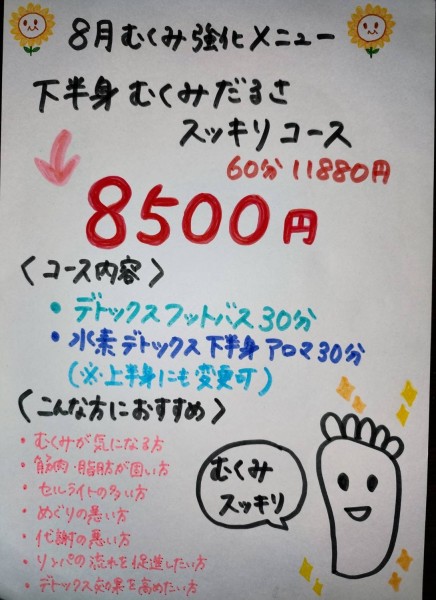 8月むくみ強化メニュー
下半身むくみだるさ
スッキリコース
60分 11880円
8500円
〈コース内容〉
・デトックスフットバス30分
・水素デトックス下半身アロマ30分
(※上半身にも変更可)
〈こんな方におすすめ〉
・むくみが気になる方
・筋肉・脂肪が固い方
・セルライトの多い方
・めぐりの悪い方
・代謝の悪い方
・リンパの流れを促進したい方
・デトックス効果を高めたい方
むくみ
スッキリ